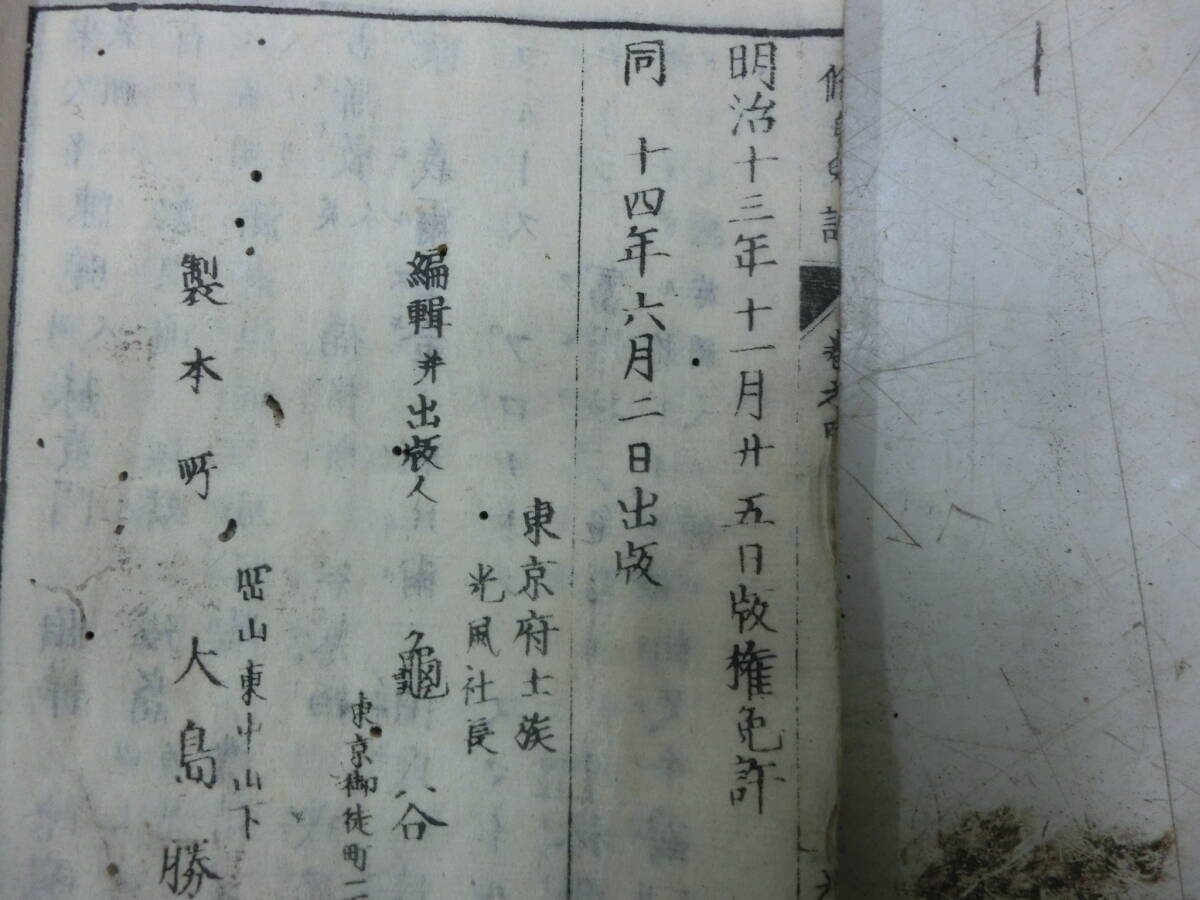 明治十三年十一月廿五日版權免許
同 十四年六月二日出版
東京府士族
光風社長
編輯并出版人 龜谷
東京御徒町二
岡山東中山下
製本所 大島勝